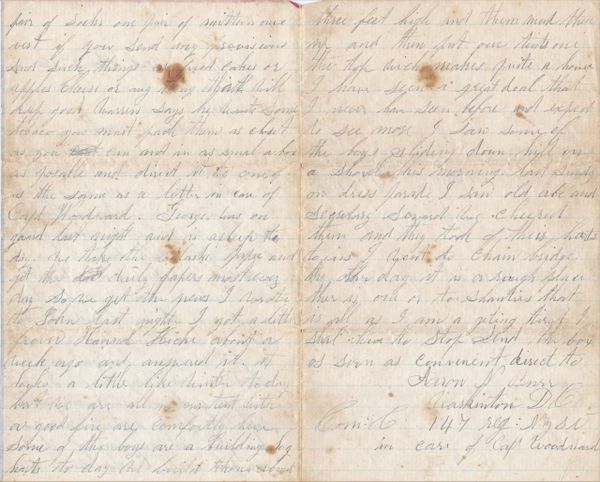 pair of Socks one pair of mittens one
vest if you Send any provisions
Send Such things as dried cakes or
apples Cheese or any thing that will
keep good Warren Says he wants Some
tobaco you must pack them as close
as you can and in as small a box
as posable and direct it to me
as the same as a letter in care of
Capt Woodward. George was on
guard last night and is asleep to
day we take the and
get the daily papers most evry
day So we get the news I wrote
to John last night I got a letter
from Hannah about a
week ago and answered it it
looks a little like winter to day
but we are all in our tent with
a good fire are comfortly here
Some of the boys are a building log
huts to day we build them
three feet high and them mud them
up and then put our tents one
the top which makes quite a house
I have seen a great deal that
I never have seen before and expect
to see more I Saw Some of
the boys sliding down hill on
a Shovel this morning last Sunday
on dress parade I Saw old abe and
Secretary Seward we cheered
them and they took of their hats
to us I went to Chain bridge
the other day it is a rough place
ther is one or too Shanties that
is all as I am a giting tired I
Shal have to Stop Send the box
as soon as convenient direct to
Aaron
Washinton D C
Com: C 147 reg: N.y.S.V.
in care of Capt Woodward